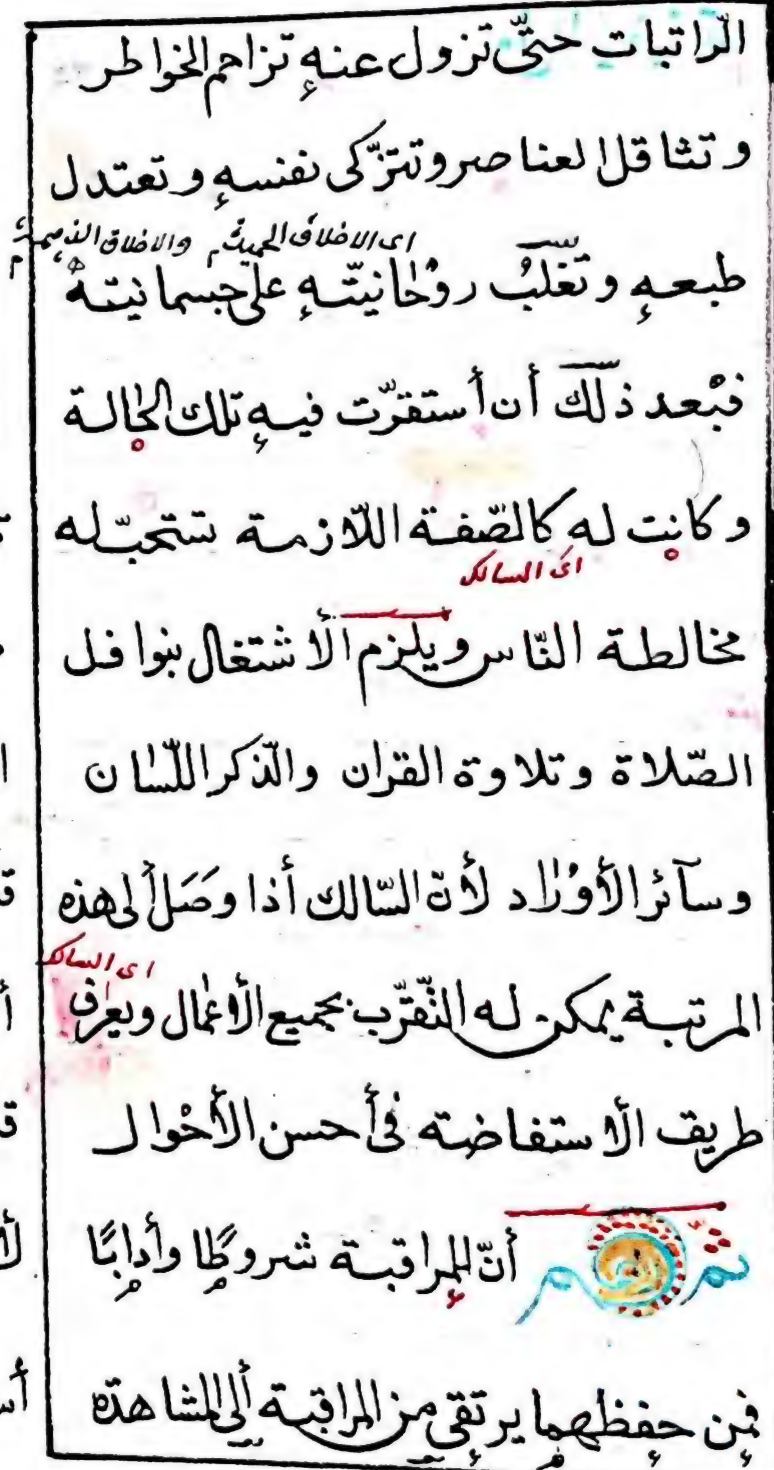 الرّاتبات حتّى تزول عنهِ تزاحم الخواطر
و تثاقل العناصر وتتزّكى نفسهِ و تعتدل
اى الاخلاق الحميدة والاخلاق الذميمة
طبعهِ و تغلبُ روْحانيّتهِ على جسمانيتهْ
فبْعد ذلّك أن أستقرّت فيهِ تلك الحالة
و كانت له كالصّفة اللّازمة تستحبّ له
اى السالك
مخالطة النّاس ويلزم ألأشتغال بنوافل
الصّلاة و تلاوة القران والّذكر اللّسان
وسآئر الأوْراد لأنّ السّالك أذا وصَل ألى هذه
اى السالك
المرتبة يمكن له التّقرّب بجميع الأعمال ويعرف
طريق الأستفاضته فى أحسن الأحْوال
ثمّ أنّ للمراقبة شروطًا وأدابًا
فمن حفظهما يرتقى من المراقبة ألى المشاهدة